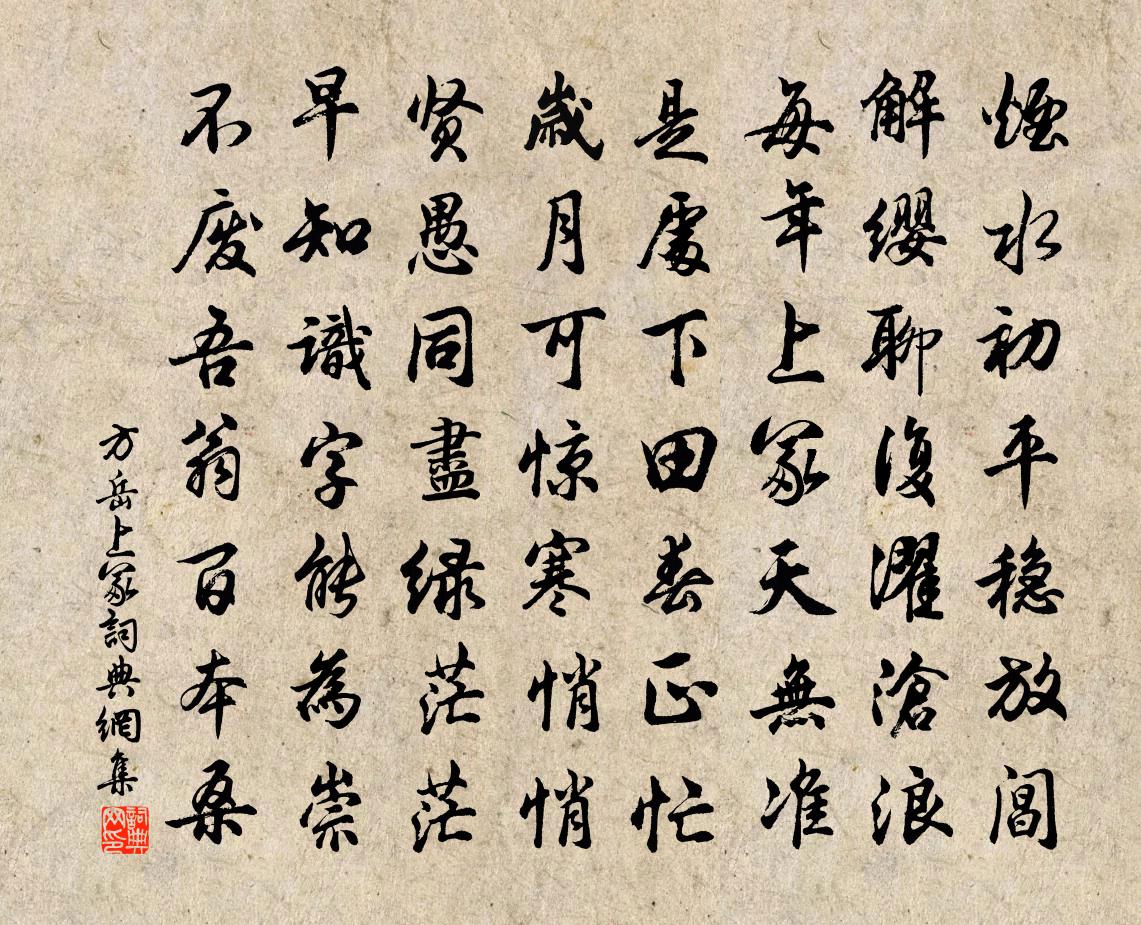 煙水初平穩放閶
解纓聊復濯滄浪
每年上冢天無准
是處下田春正忙
歲月可惊寒悄悄
賢愚同盡綠茫茫
早知識字能為崇
不廢吾翁百本桑
方岳上冢詞典網集
詞典网印